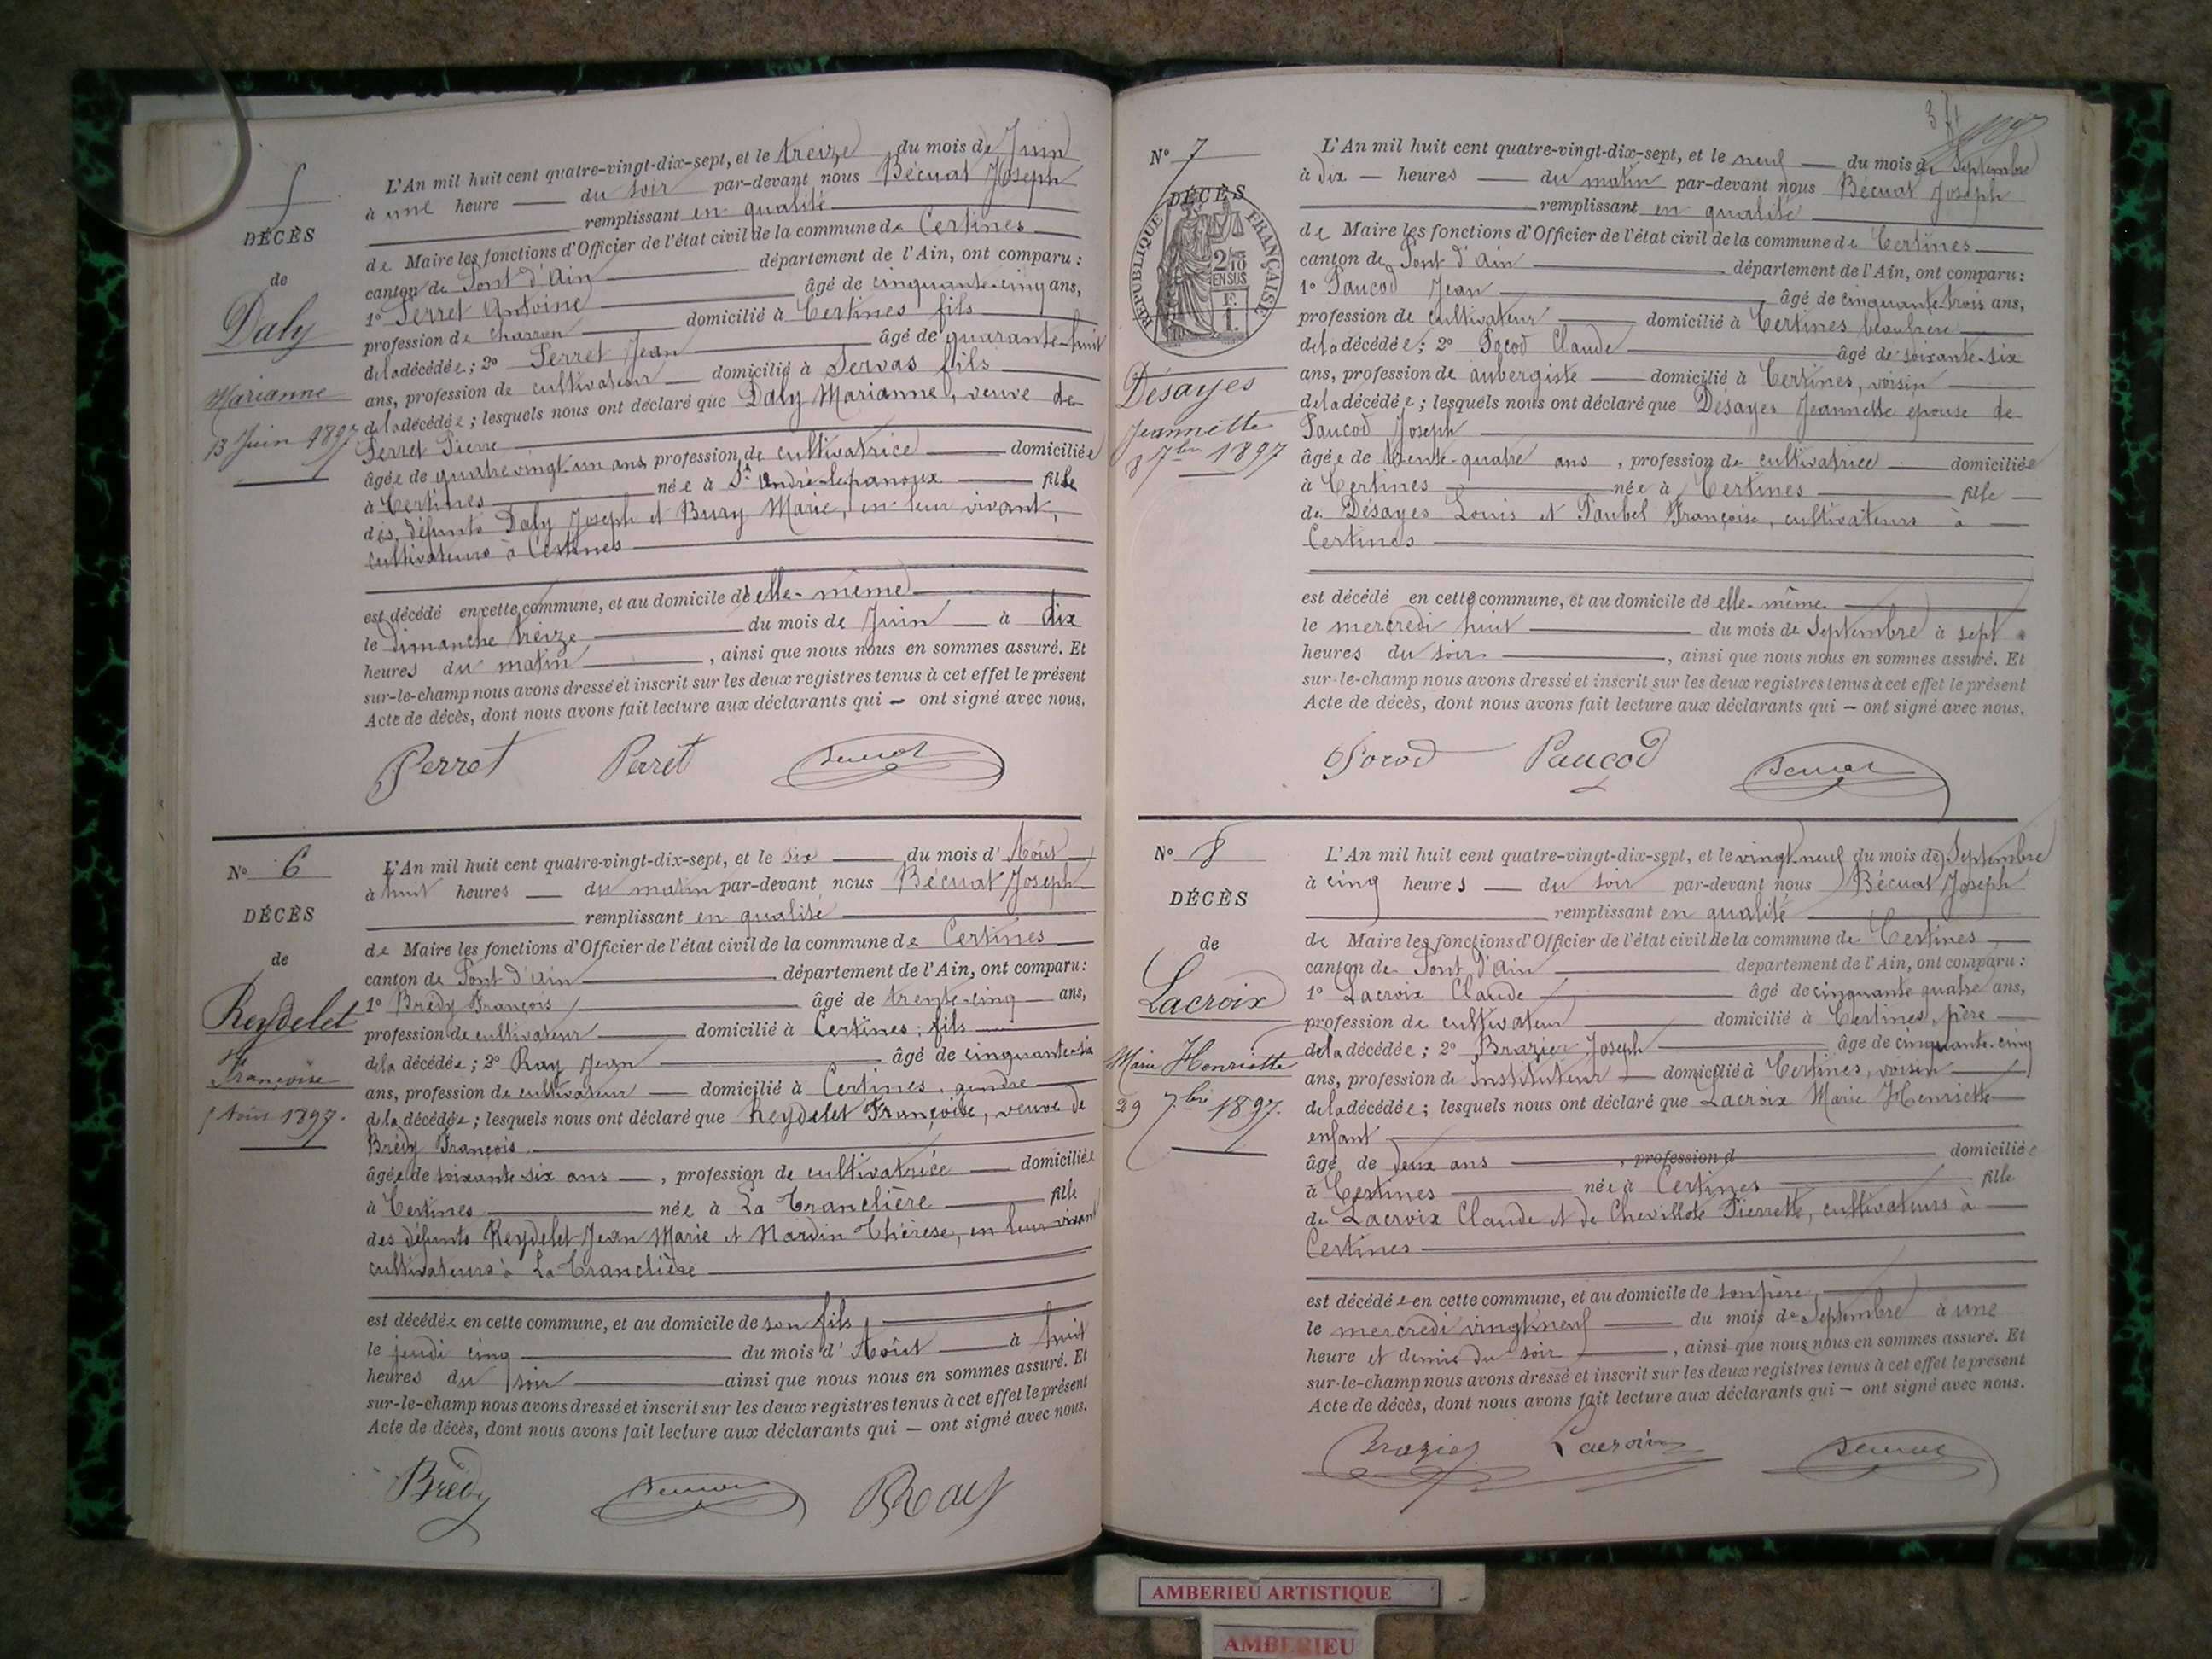 5
DÉCÈS
de
Daly
Marianne
13 Juin 1897
L'An mil huit cent quatre-vingt-dix-sept, et le treize du mois de Juin
à une heure du soir par-devant nous Bécuat Joseph
remplissant en qualité
de Maire les fonctions d'Officier de l'état civil de la commune de Certines
canton de Pont d'Ain département de l'Ain, ont comparu :
1° Perret Antoine âgé de cinquante-cinq ans,
profession de charron domicilié à Certines fils
de la décédée ; 2° Perret Jean âgé de quarante-huit
ans, profession de cultivateur domicilié à Servas fils
de la décédée ; lesquels nous ont déclaré que Daly Marianne, veuve de
Perret Pierre
âgée de quatre vingt un ans, profession de cultivatrice domiciliée
à Certines née à St André-le-panoux fille
des défunts Daly Joseph et Buny Marie, en leur vivant,
cultivateurs à Certines
est décédé en cette commune, et au domicile de elle-même
le dimanche treize du mois de Juin à dix
heures du matin, ainsi que nous nous en sommes assuré. Et
sur-le-champ nous avons dressé et inscrit sur les deux registres tenus à cet effet le présent
Acte de décès, dont nous avons fait lecture aux déclarants qui — ont signé avec nous.
Perret Perret Bécuat
N° 6
DÉCÈS
de
Reydelet
Françoise
5 Août 1897.
L'An mil huit cent quatre-vingt-dix-sept, et le six du mois d'Août
à huit heures du matin par-devant nous Bécuat Joseph
remplissant en qualité
de Maire les fonctions d'Officier de l'état civil de la commune de Certines
canton de Pont d'Ain département de l'Ain, ont comparu :
1° Brédy François âgé de trente-cinq ans,
profession de cultivateur domicilié à Certines, fils
de la décédée ; 2° Ray Jean âgé de cinquante-six
ans, profession de cultivateur domicilié à Certines, gendre
de la décédée ; lesquels nous ont déclaré que Reydelet Françoise, veuve de
Brédy François
âgée de soixante-six ans, profession de cultivatrice domiciliée
à Certines née à La Tranclière fille
des défunts Reydelet Jean Marie et Nardin Thérèse, en leur vivant
cultivateurs à La Tranclière
est décédée en cette commune, et au domicile de son fils
le jeudi cinq du mois d'Août à huit
heures du soir ainsi que nous nous en sommes assuré. Et
sur-le-champ nous avons dressé et inscrit sur les deux registres tenus à cet effet le présent
Acte de décès, dont nous avons fait lecture aux déclarants qui — ont signé avec nous.
Brédy Bécuat Ray
N° 7
DÉCÈS
RÉPUBLIQUE FRANÇAISE
2/10
EN SUS
F.
1.
Désayes
Jeannette
8 7bre 1897
L'An mil huit cent quatre-vingt-dix-sept, et le neuf du mois de Septembre
à dix heures du matin par-devant nous Bécuat Joseph
remplissant en qualité
de Maire les fonctions d'Officier de l'état civil de la commune de Certines
canton de Pont d'Ain département de l'Ain, ont comparu :
1° Paucod Jean âgé de cinquante-trois ans,
profession de cultivateur domicilié à Certines beaufrère
de la décédée ; 2° Pocod Claude âgé de soixante-six
ans, profession de aubergiste domicilié à Certines, voisin
de la décédée ; lesquels nous ont déclaré que Désayes Jeannette épouse de
Paucod Joseph
âgée de trente-quatre ans, profession de cultivatrice domiciliée
à Certines née à Certines fille
de Désayes Louis et Paubel Françoise, cultivateurs à
Certines
est décédé en cette commune, et au domicile de elle-même
le mercredi huit du mois de Septembre à sept
heures du soir, ainsi que nous nous en sommes assuré. Et
sur-le-champ nous avons dressé et inscrit sur les deux registres tenus à cet effet le présent
Acte de décès, dont nous avons fait lecture aux déclarants qui — ont signé avec nous.
Pocod Paucod Bécuat
N° 8
DÉCÈS
de
Lacroix
Marie Henriette
29 7bre 1897.
L'An mil huit cent quatre-vingt-dix-sept, et le vingt neuf du mois de Septembre
à cinq heures du soir par-devant nous Bécuat Joseph
remplissant en qualité
de Maire les fonctions d'Officier de l'état civil de la commune de Certines
canton de Pont d'Ain département de l'Ain, ont comparu :
1° Lacroix Claude âgé de cinquante quatre ans,
profession de cultivateur domicilié à Certines, père
de la décédée ; 2° Brazier Joseph âgé de cinquante-cinq
ans, profession de Instituteur domicilié à Certines, voisin
de la décédée ; lesquels nous ont déclaré que Lacroix Marie Henriette
enfant
âgé de deux ans, profession d domiciliée
à Certines née à Certines fille
de Lacroix Claude et de Chevillote Pierrette, cultivateurs à
Certines
est décédée en cette commune, et au domicile de son père
le mercredi vingt neuf du mois de Septembre à une
heure et demie du soir, ainsi que nous nous en sommes assuré. Et
sur-le-champ nous avons dressé et inscrit sur les deux registres tenus à cet effet le présent
Acte de décès, dont nous avons fait lecture aux déclarants qui — ont signé avec nous.
Brazier Lacroix Bécuat
AMBERIEU ARTISTIQUE
AMBERIEU